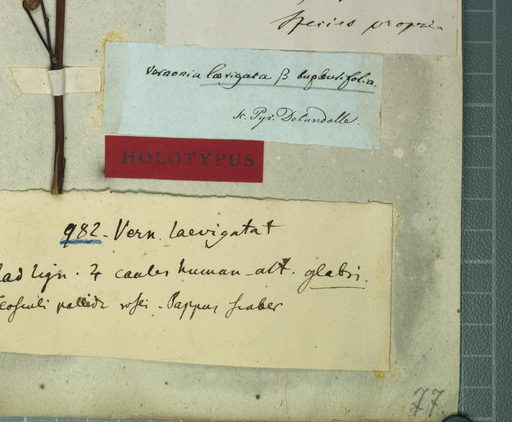 Species propria
Vernonia lævigata β bupleurifolia.
Pyr. Decandolle.
HOLOTYPUS
982. Vern laevigata t
Rad lign. ♃ caules human. alt. glabri.
flosculi pallide rosei. Pappus scaber
77.